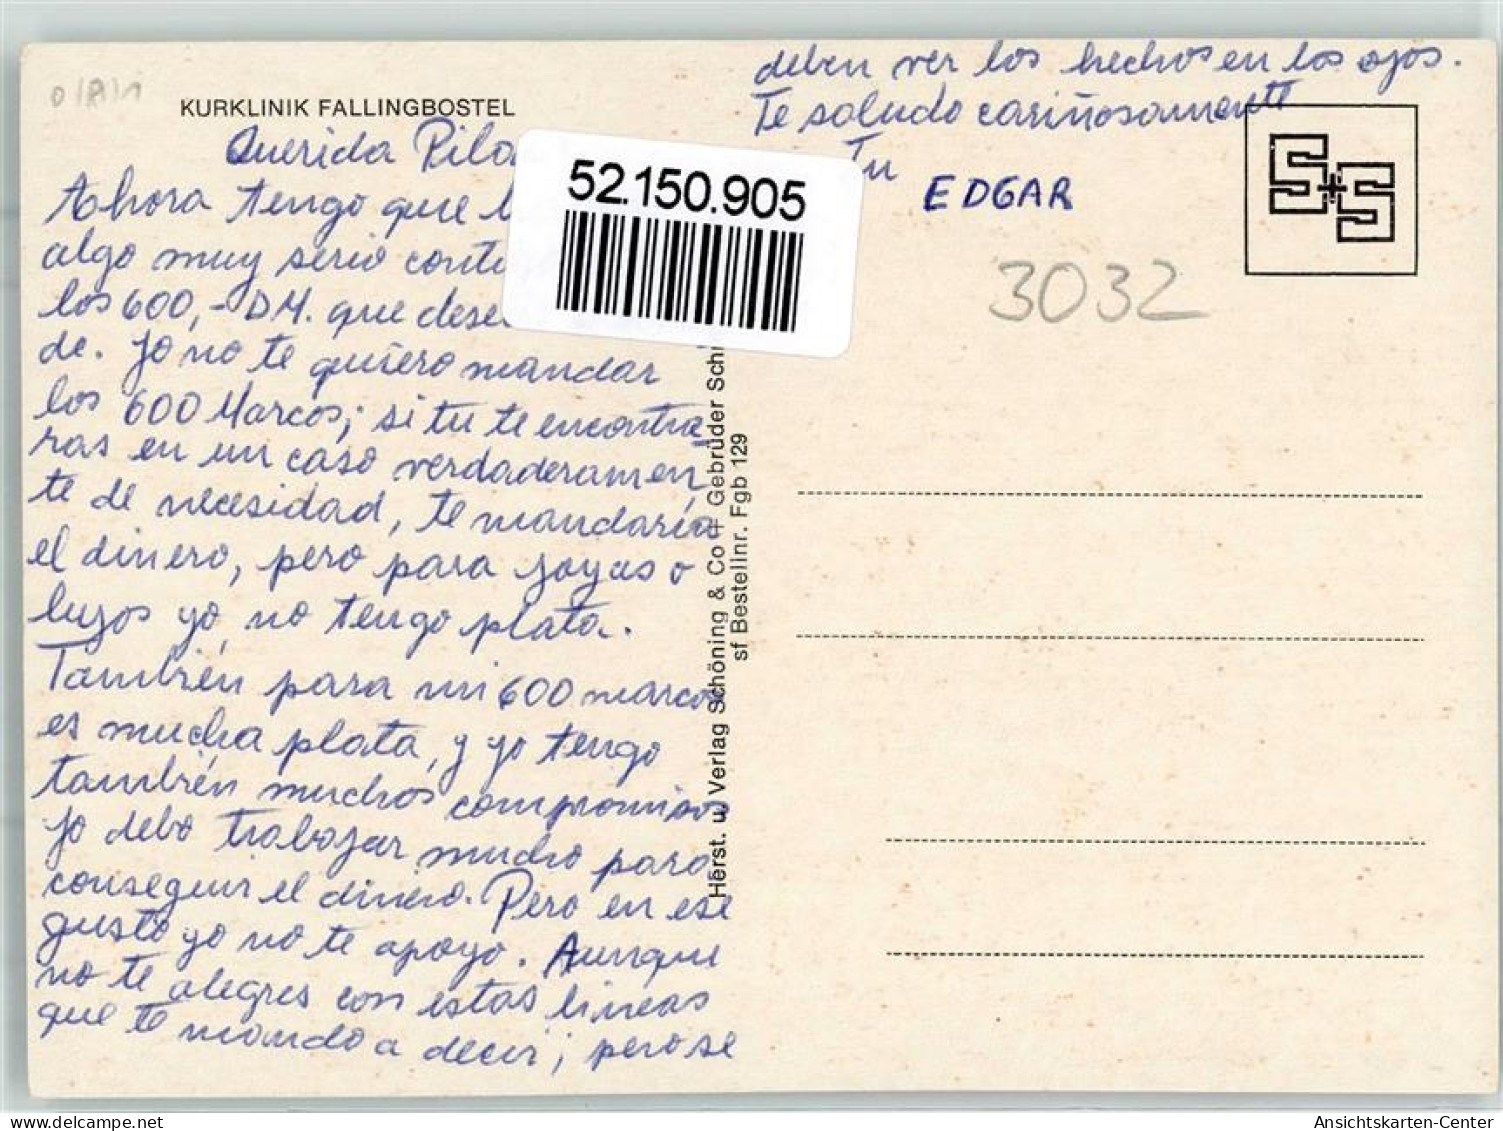 KURKLINIK FALLINGBOSTEL
Querida Pila
Ahora tengo que
algo muy serio
los 600,- DM. que
de. Yo no te quiero mandar
los 600 Marcos; si tu te encontra
ras en un caso verdaderamen
te de necesidad, te mandaría
el dinero, pero para joyas o
lujos yo no tengo plata.
También para mi 600 marcos
es mucha plata, y yo tengo
también muchos compromisos
Yo debo trabajar mucho para
conseguir el dinero. Pero en ese
gusto yo no te apoyo. Aunque
no te alegres con estas líneas
que te mando a decir; pero se
deben ver los hechos en los ojos.
Te saludo cariñosamente
Tu
EDGAR
52.150.905
S+S
3032
Herst. u. Verlag Schöning & Co + Gebrüder
sf Bestellnr. Fgb 129
Ansichtskarten-Center